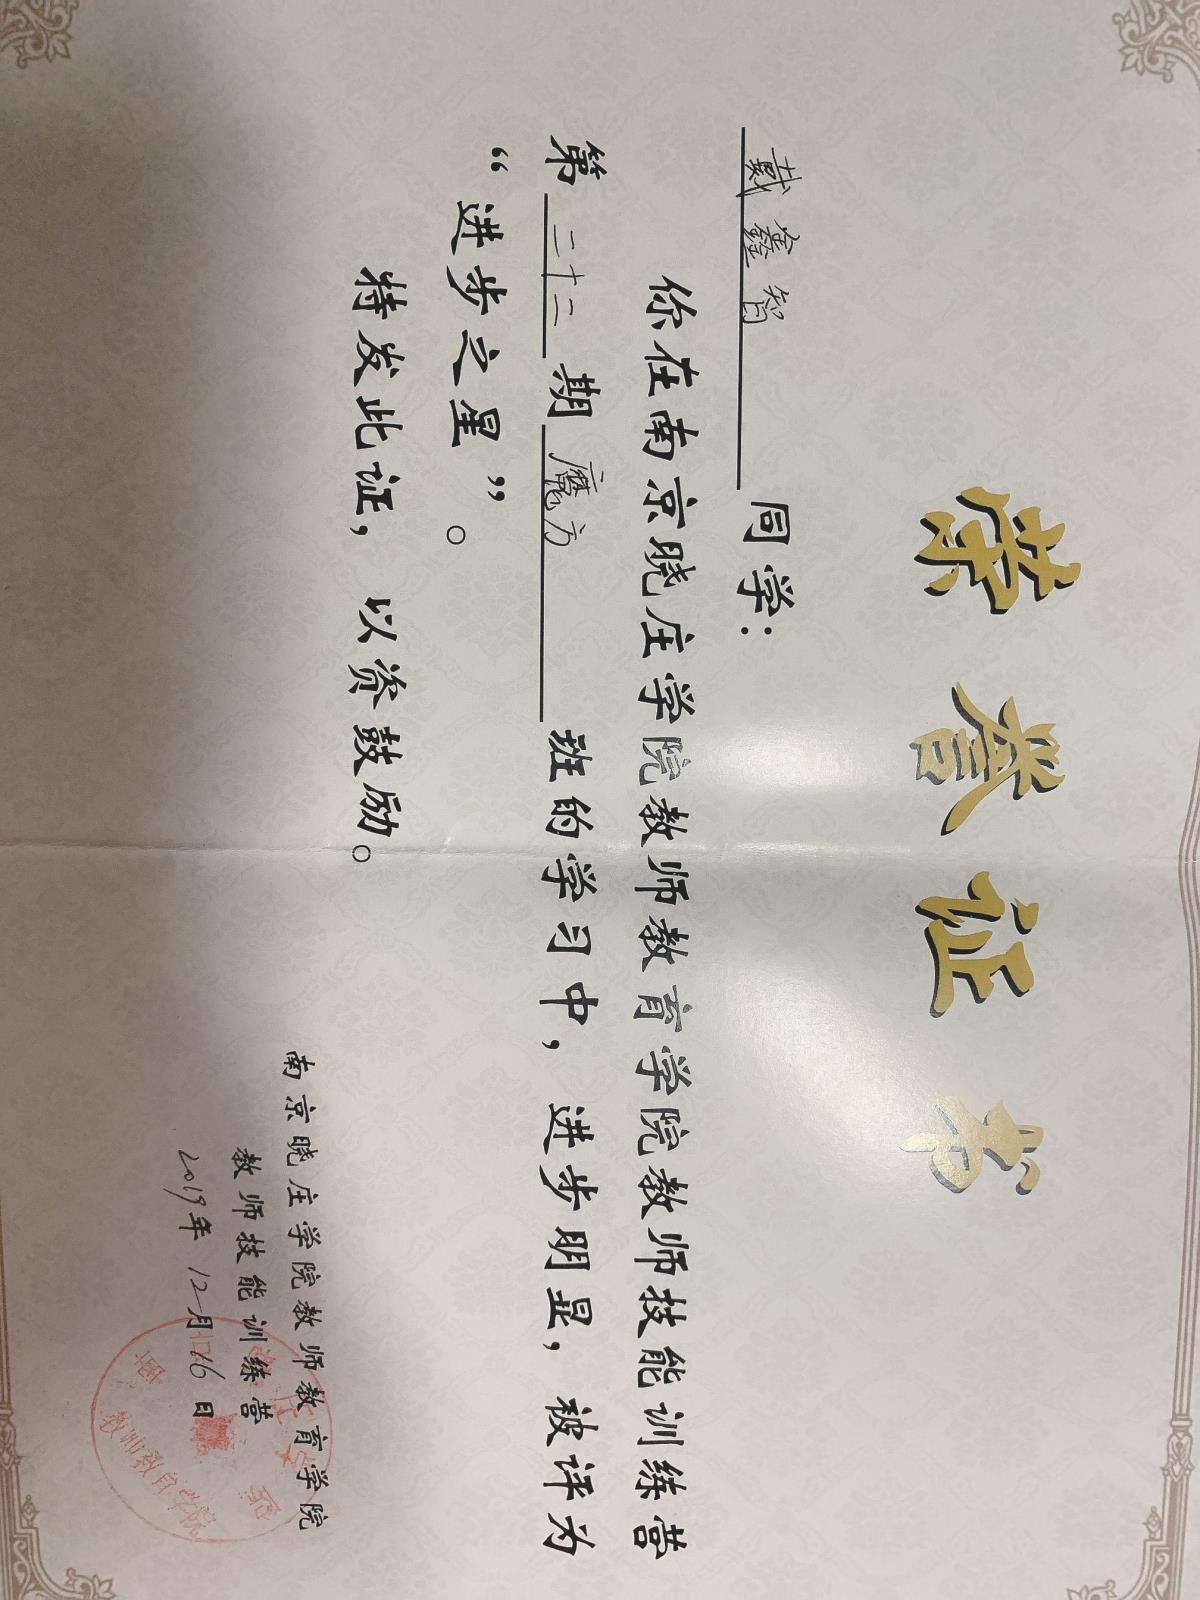 荣誉证书
戴鑫智 同学：
你在南京晓庄学院教师教育学院教师技能训练营
第 二十二 期 魔方 班的学习中，进步明显，被评为
“进步之星”。
特发此证，以资鼓励。
南京晓庄学院教师教育学院
教师技能训练营
2019年12月16日
教师教育学院